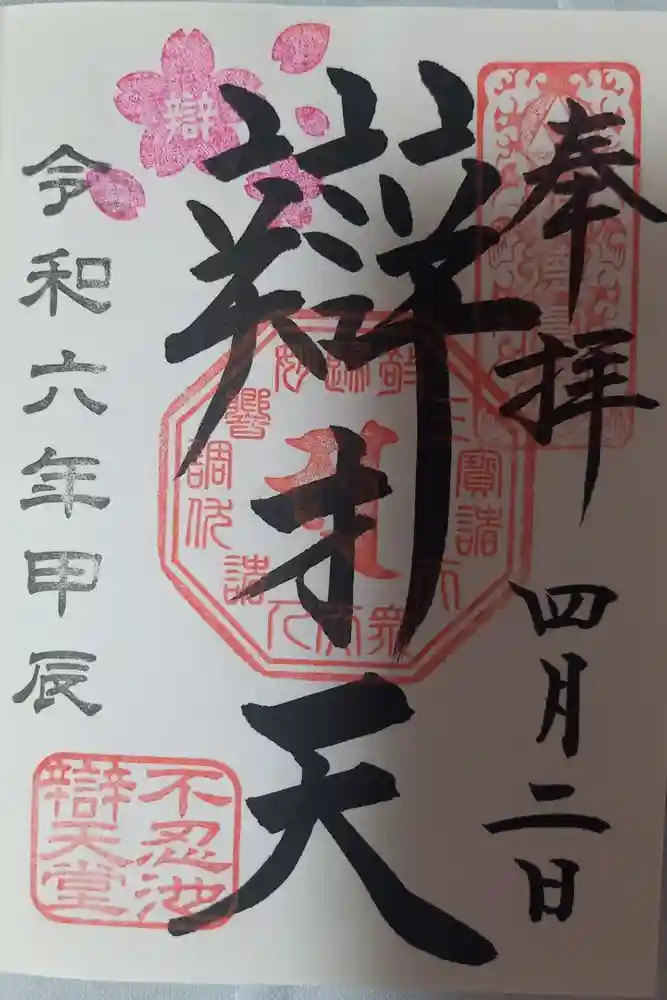 奉拝 四月二日
辯才天
辯
令和六年甲辰
不忍池
辯天堂